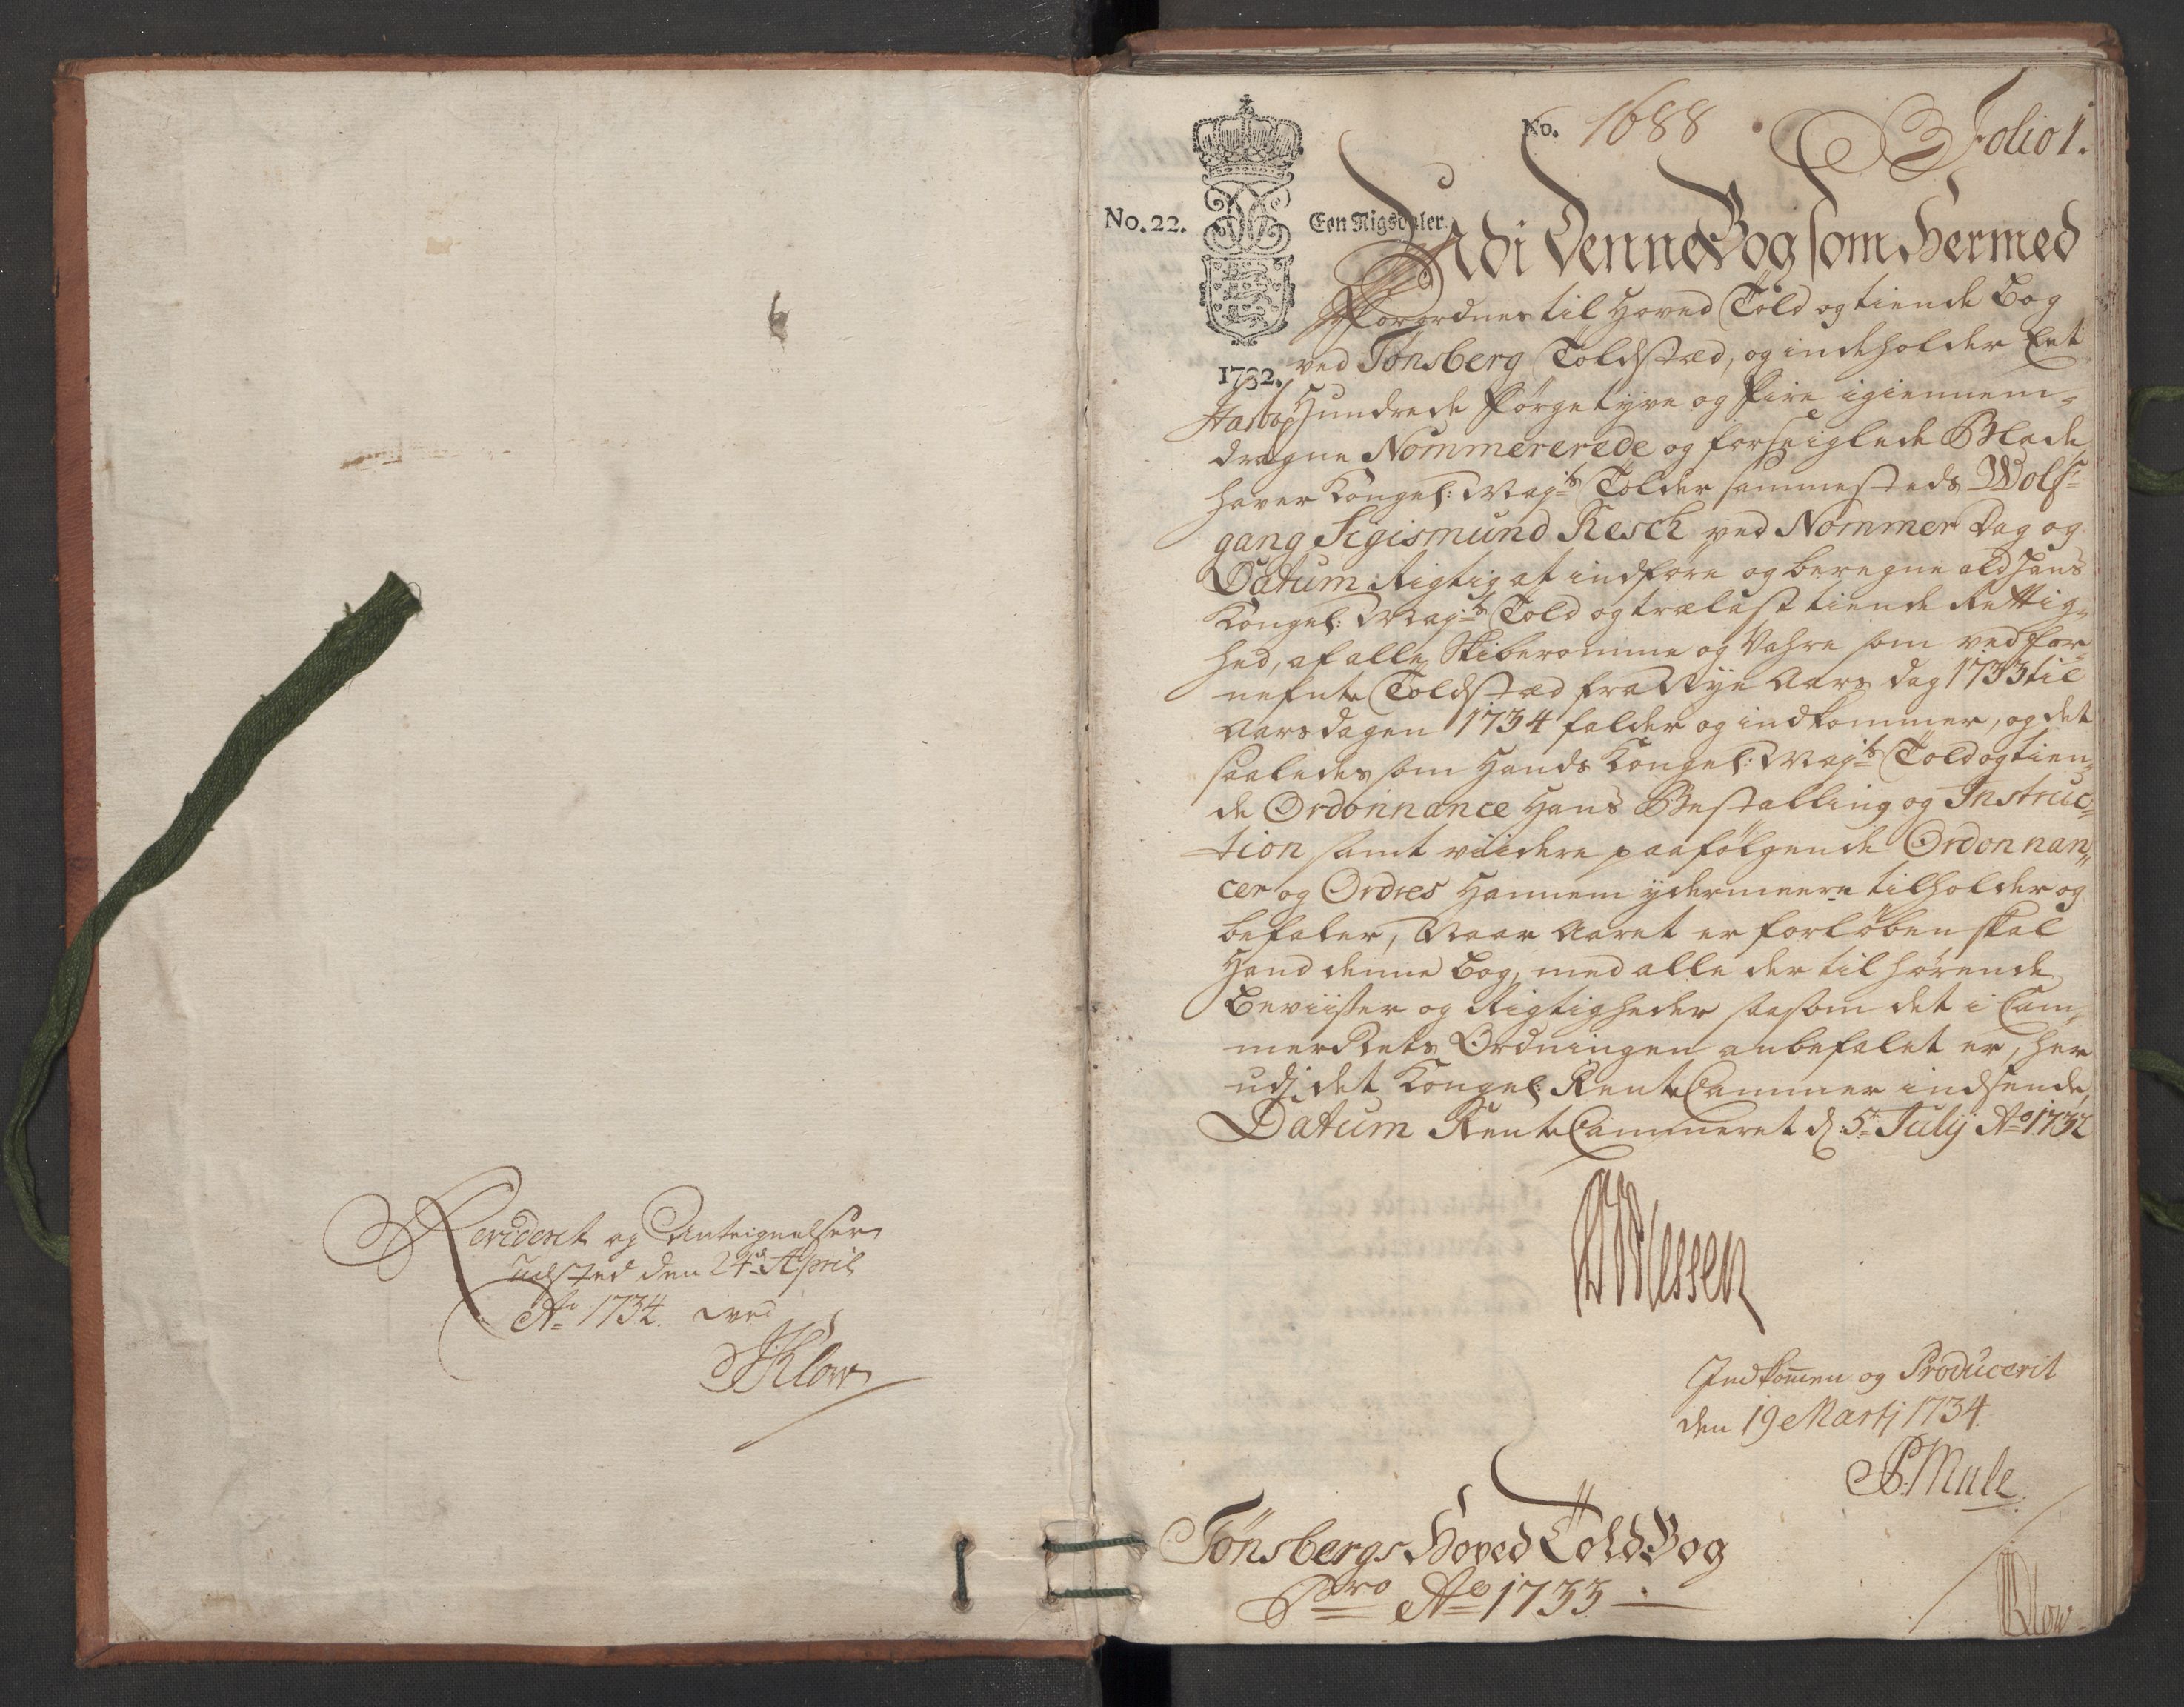 Revideret og Anteignelser
Udsted den 24de April
Ao 1734. ved
JKlow
No. 1688
Folio 1.
No. 22.
Een Rigsdaler.
1732.
Udi Denne Bog som Hermed
Forordnes til Hoved Told og tiende Bog
ved Tönsberg Toldstæd, og indeholder Eet
HundredeFörgetyve og Fire igiennem-
dragne Nommererede og forseiglede Blade
haver Kongel: Mayts Tolder sammesteds Wolf-
gang Sigismund Resch ved Nommer Dag og
Datum Rigtig at indföre og beregne ald Hans
Kongel: Mayts Told og trælast tiende Rettig-
hed, af alle Skiberomme og Vahre som ved for-
nefnte Toldstæd fra Nye Aars dag 1733 til
Aarsdagen 1734 falder og indkommer, og det
saaledes som Hands Kongel: Mayts Told og tien-
de Ordonnance Hans Bestalling og Instruc-
tion samt viidere paafölgende Ordonnan-
cer og Ordres Hannem ydermeere tilholder og
befaler, Naar Aaret er forlöben skal
Hand denne Bog, med alle der til hörende
Beviister og Rigtigheder saasom det i Cam-
merRets Ordningen anbefalet er, her
udj det Kongel: Rente Cammer indsende,
Datum Rente Cammeret d: 5te Julij Ao 1732
Indkommen og Producerit
den 19 Martj 1734.
P. Mule.
Tönsbergs Hoved Told Bog
Pro Ao 1733.